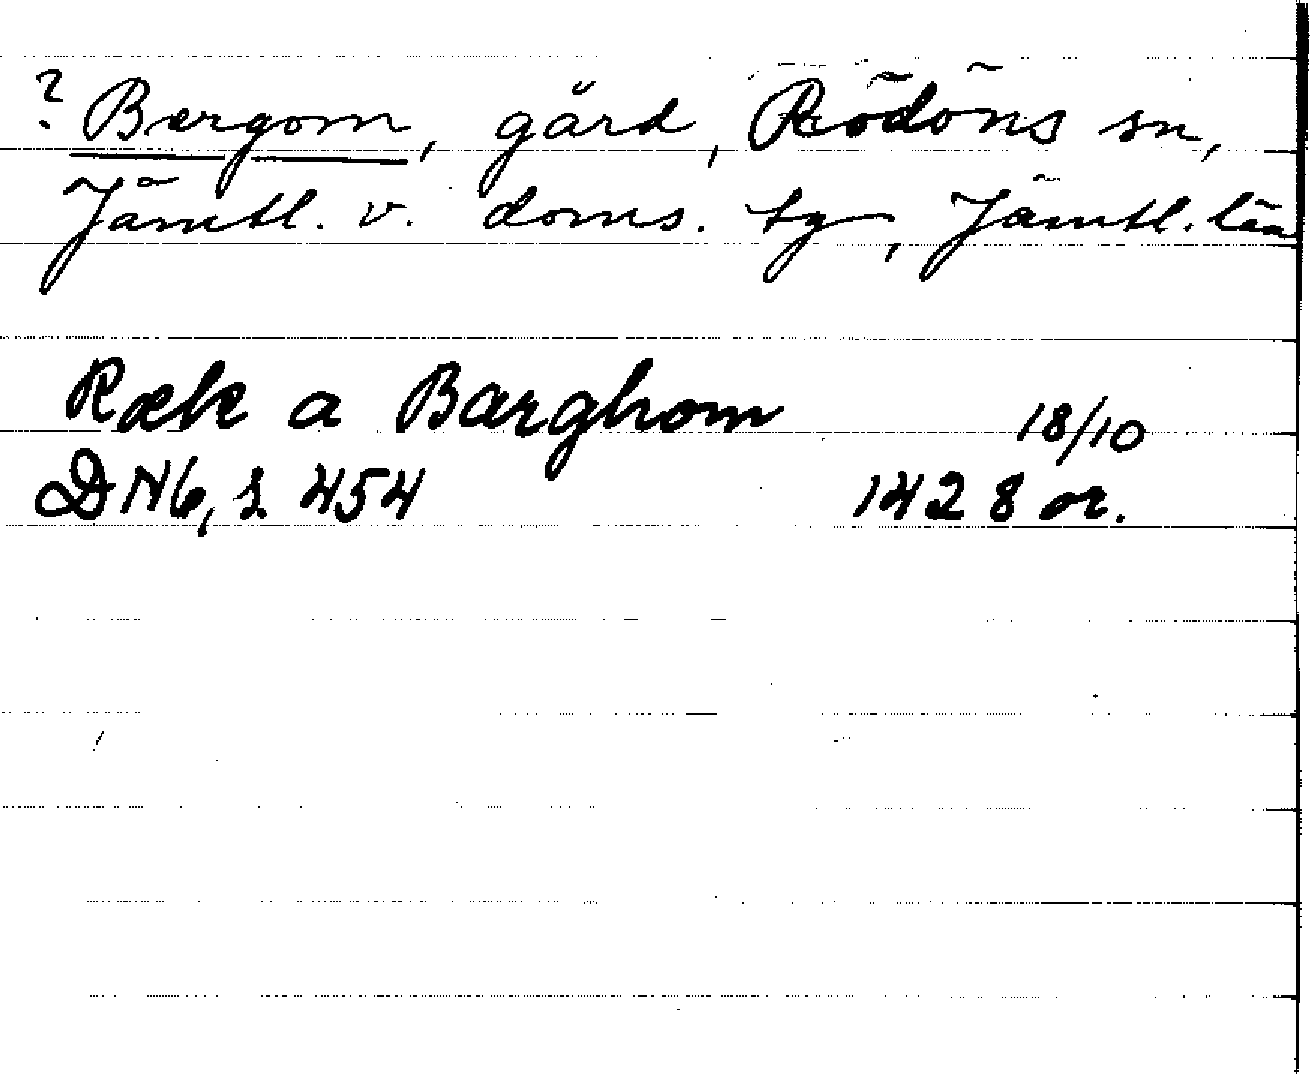 ? Bergom, gård, Rödöns sn,
Jämtl. v. doms. tg, Jämtl. län
Ræk a Barghom 18/10
DN6, s 454 1428 or.